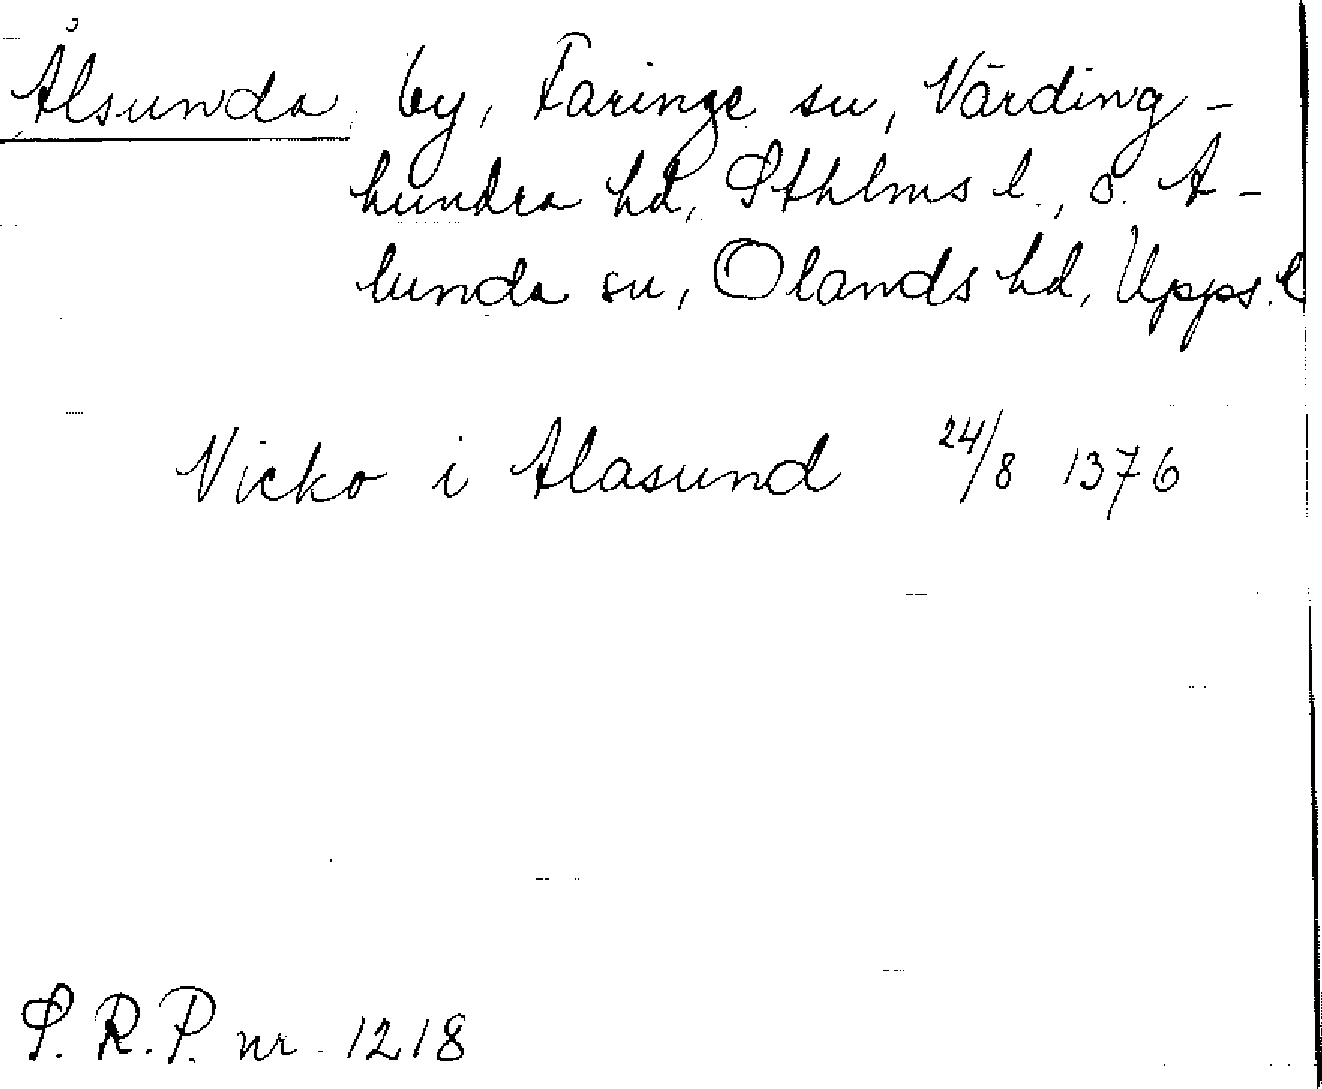 Ålsunda by, Faringe sn, Närding-
hundra hd, Sthlms l., o. A-
lunda sn, Olands hd, Upps. l
Nicko i Alasund 24/8 1376
S. R. P. nr 1218